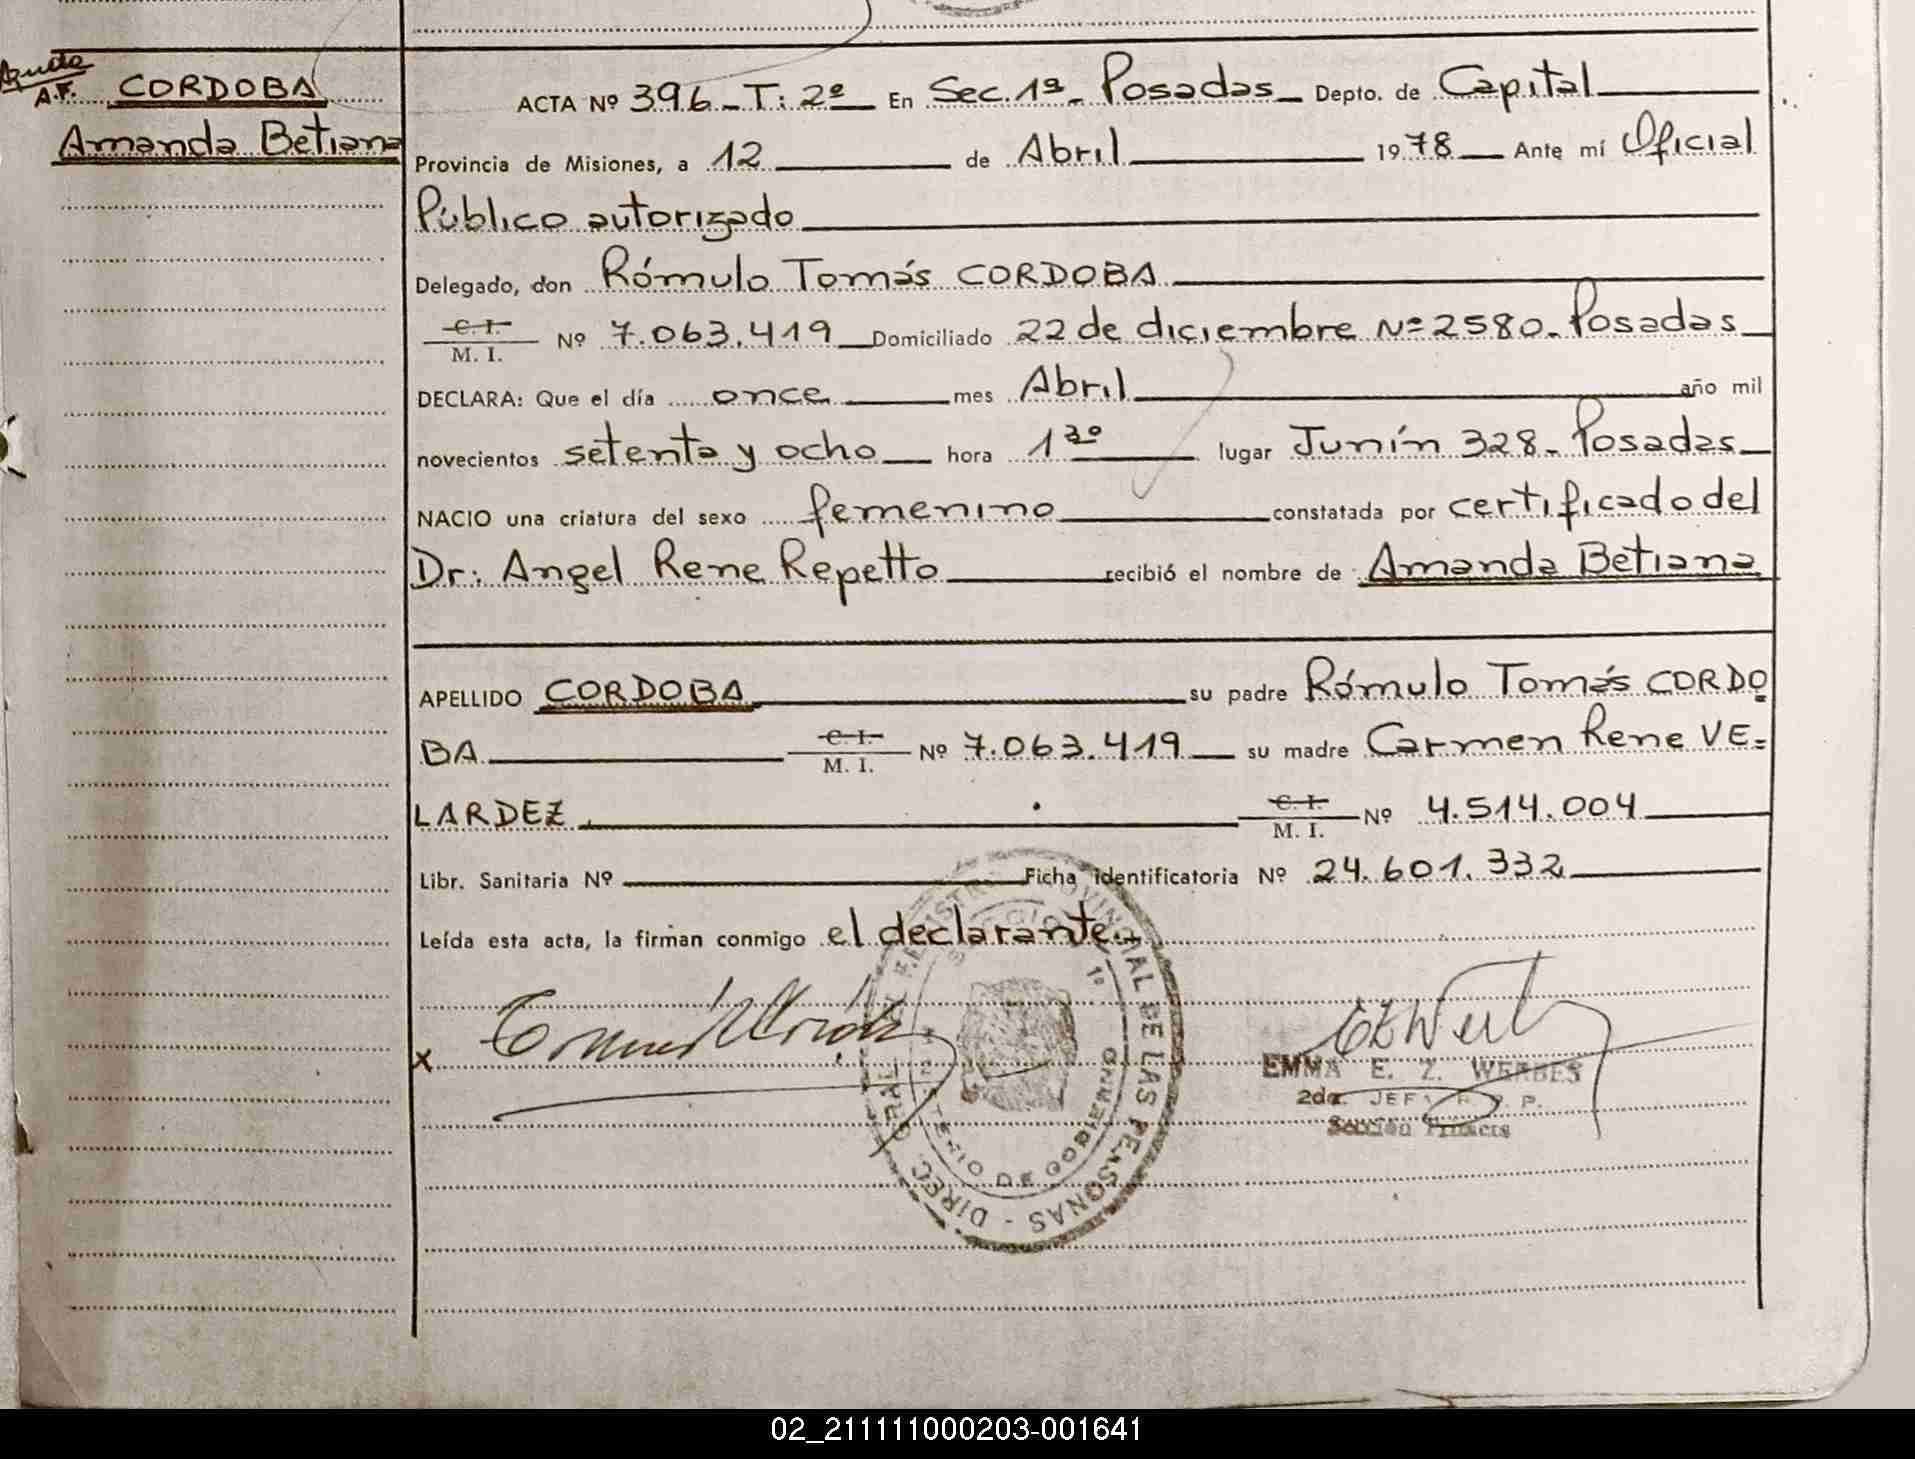 Ayuda
A.F. CORDOBA
Amanda Betiana
ACTA Nº 396 - T: 2º En Sec. 1ª - Posadas Depto. de Capital
Provincia de Misiones, a 12 de Abril 1978 Ante mí Oficial
Público autorizado
Delegado, don Rómulo Tomás CORDOBA
C. I. / M. I. Nº 7.063.419 Domiciliado 22 de diciembre Nº 2580 - Posadas
DECLARA: Que el día once mes Abril año mil
novecientos setenta y ocho hora 1 30 lugar Junín 328 - Posadas
NACIO una criatura del sexo femenino constatada por certificado del
Dr. Angel Rene Repetto recibió el nombre de Amanda Betiana
APELLIDO CORDOBA su padre Rómulo Tomás CORDO
BA C. I. / M. I. Nº 7.063.419 su madre Carmen Rene VE=
LARDEZ C. I. / M. I. Nº 4.514.004
Libr. Sanitaria Nº Ficha identificatoria Nº 24.601.332
Leída esta acta, la firman conmigo el declarante.
X
EMMA E. Z. WERBES
2da. JEFA R. P. P.
Sección Primera
DIREC. GRAL. REGISTRO PROVINCIAL DE LAS PERSONAS
MINISTERIO DE GOBIERNO
SECCION 1º
02_211111000203-001641